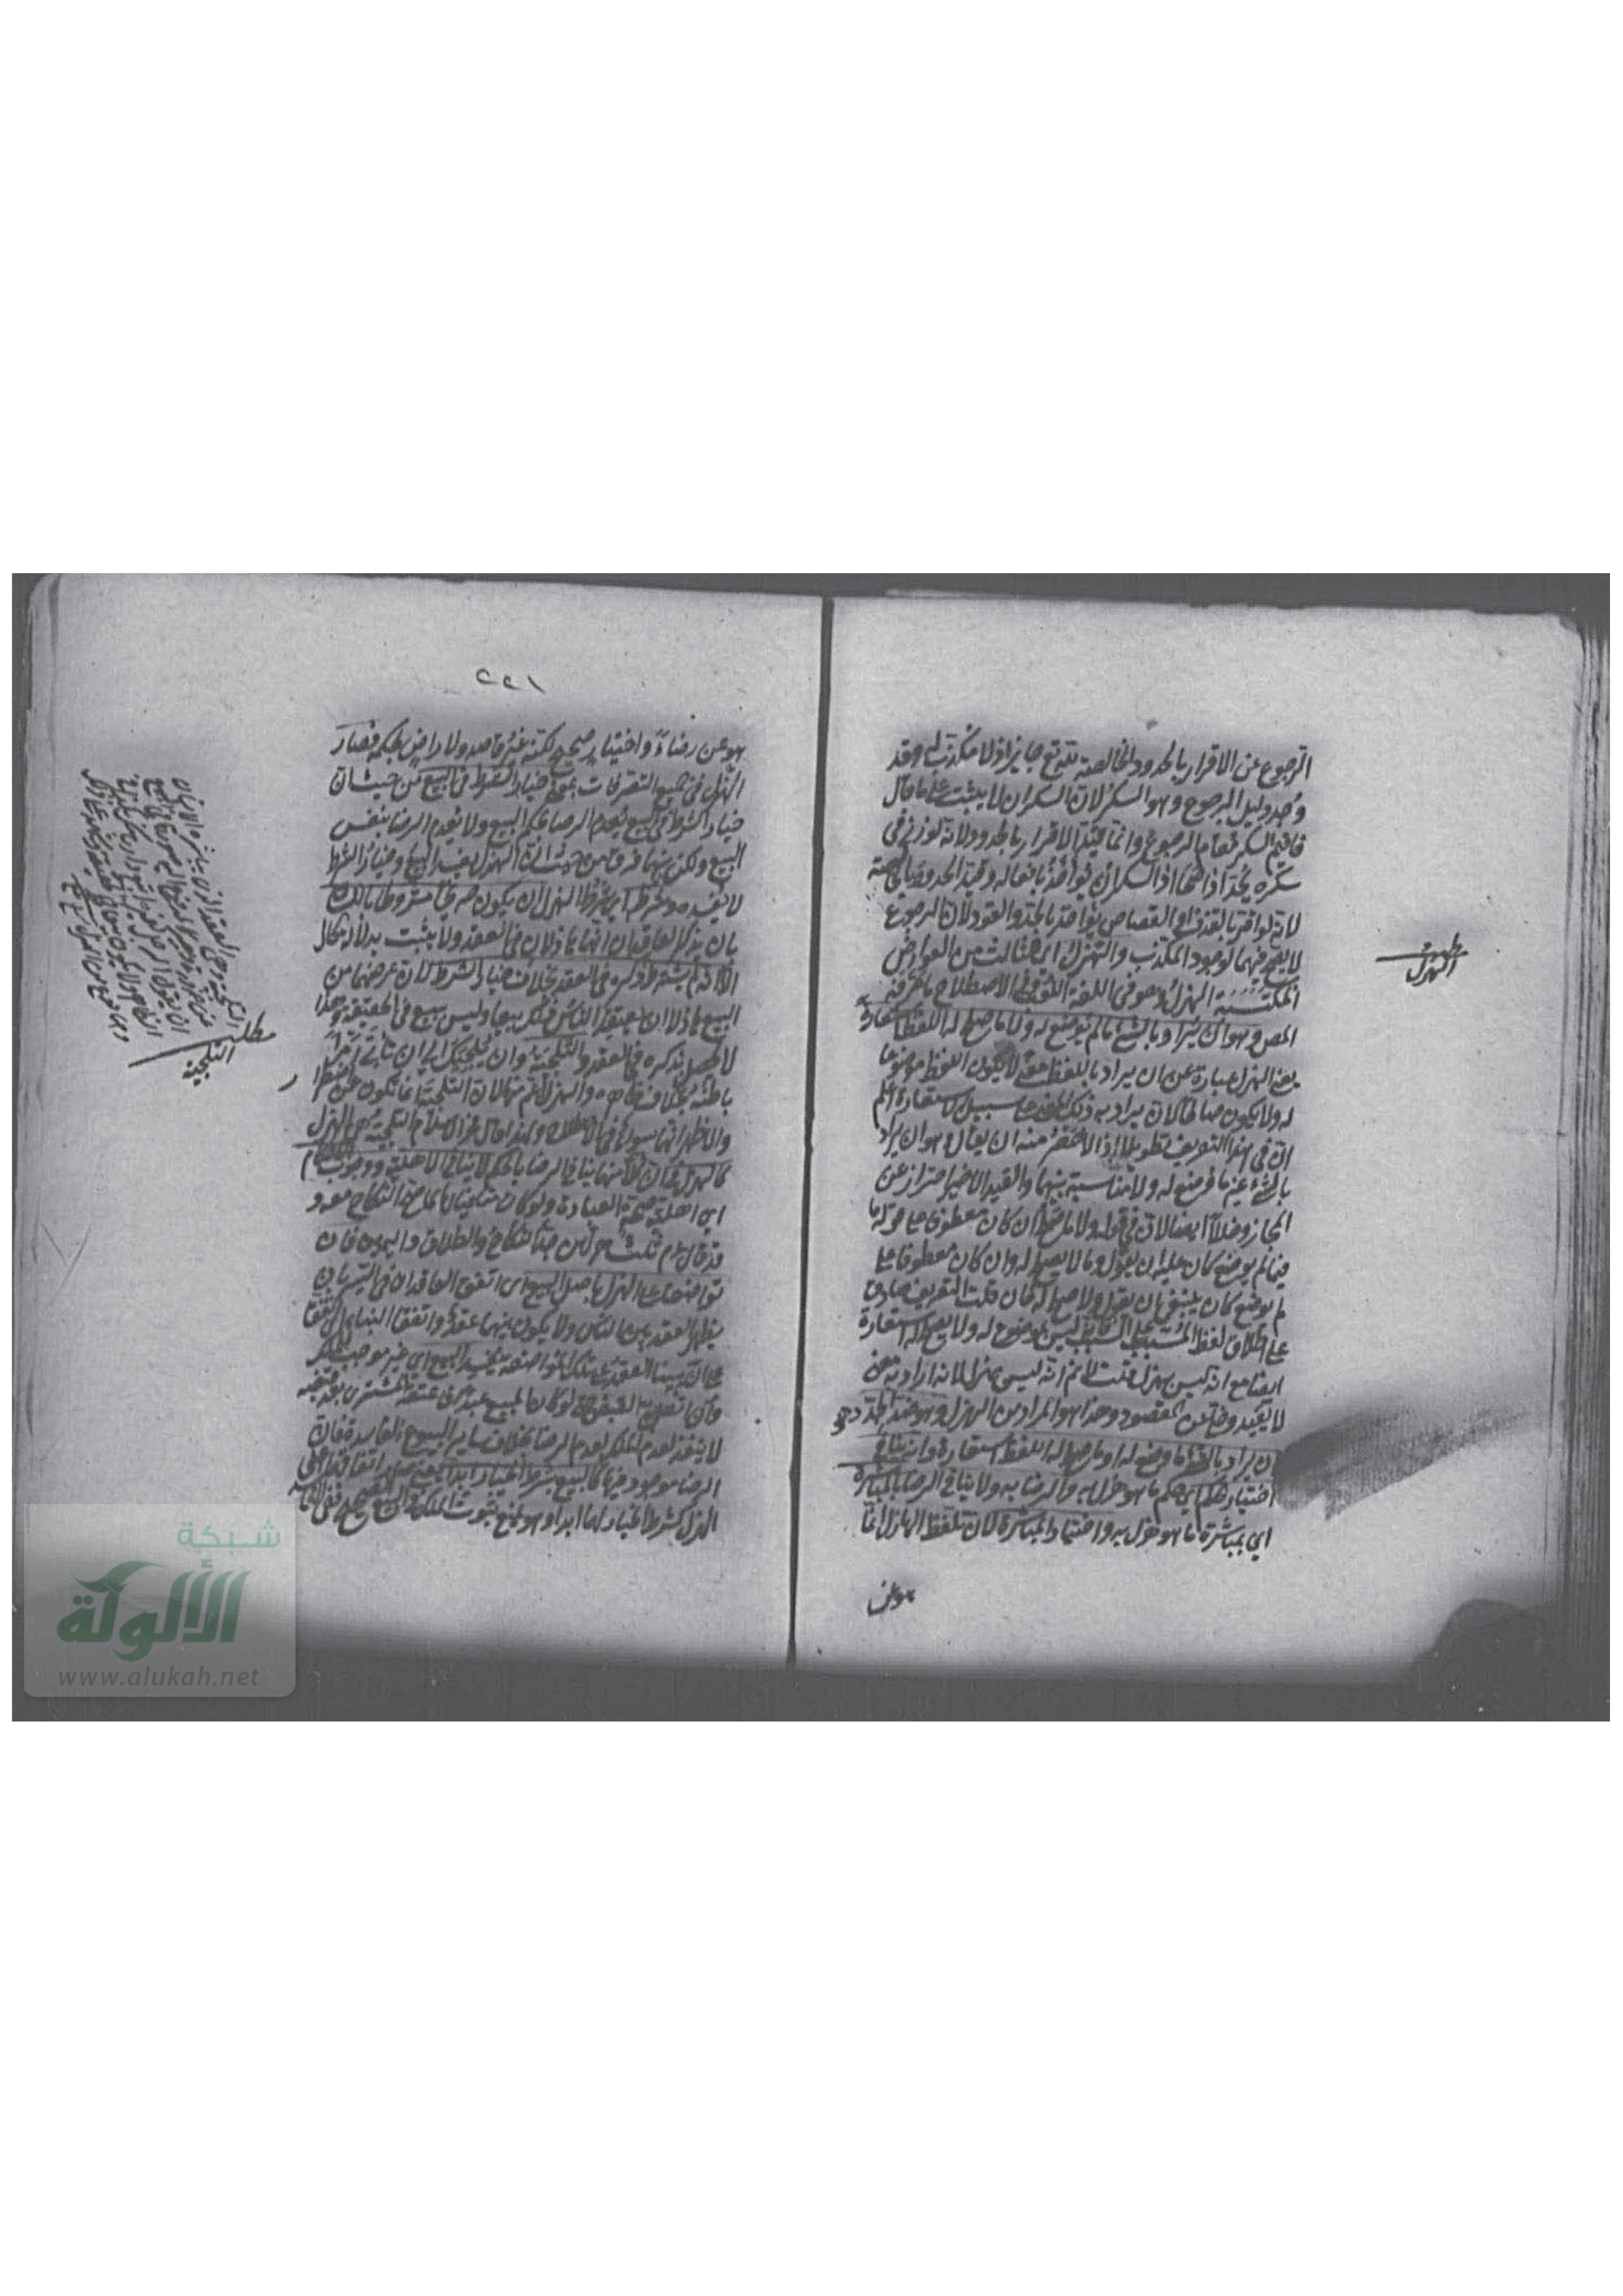 الرجوع عن الاقرار بالحدود الخالصة لله تع جايز اذ لا مكذب له وقد
وجد دليل الرجوع وهو السكر لان السكران لا يثبت على ما قال
فاقيم السكر مقام الرجوع وانما قيد الاقرار بالحدود لانه لو زنى في
سكره يحد اذا صحا اذ السكران يؤاخذ بافعاله وقيد الحدود بالخالصة
لانه لو اقر بالقذف او القصاص يؤاخذ بالحد والقود لان الرجوع
لا يصح فيهما لوجود المكذب والهزل اى الثالث من العوارض
المكتسبة الهزل وهو في اللغة اللعب وفي الاصطلاح ما عرفه
المص وهو ان يراد بالشئ ما لم يوضع له ولا ما صلح له اللفظ استعارة
يعنى الهزل عبارة عن ان يراد باللفظ معنى لا يكون اللفظ موضوعا
له ولا يكون صالحا لان يراد به ذلك المعنى على سبيل الاستعارة اعلم
ان في هذا التعريف تطويلا اذ الاخصر منه ان يقال وهو ان يراد
بالشئ غير ما وضع له ولا مناسبة بينهما والقيد الاخير احتراز عن
المجاز وخللا ايضا لان في قوله ولا ما صلح ان كان معطوفا على قوله ما
لم يوضع كان عليه ان يقول وما لا يصلح له وان كان معطوفا على
لم يوضع كان ينبغى ان يقول ولا صلح له فان قلت التعريف صادق
على اطلاق لفظ المسبب على السبب ليس بموضوع له ولا يصلح له استعارة
ايضا مع انه ليس بهزل قلت لا نم انه ليس بهزل لانه اراد به معنى
لا يفيد وخلا عن المقصود وهذا هو المراد من الهزل وهو ضد الجد وهو
ان يراد بالشئ ما وضع له او ما صلح له اللفظ استعارة وانه ينافي
اختيار الحكم اى حكم ما هو هزل به والرضا به ولا ينافي الرضا بالمباشرة
اى بمباشرة ما هو هزل به واختيار المباشرة لان تلفظ الهازل انما
هو عن
مطلب
الهزل
٢٢١
هو عن رضاء واختيار صحيح لكنه غير قاصد ولا راض بحكمه فصار
الهزل في جميع التصرفات بمنزلة خيار الشرط في البيع من حيث ان
خيار الشرط في البيع يعدم الرضا بحكم البيع ولا يعدم الرضا بنفس
البيع ولكن بينهما فرق من حيث ان الهزل يفسد البيع وخيار الشرط
لا يفسده وشرطه اى شرط الهزل ان يكون صريحا مشروطا باللسان
بان يذكر العاقدان انهما هاذلان في العقد ولا يثبت بدلالة الحال
الا انه لم يشترط ذكره في العقد بخلاف خيار الشرط لان غرضهما من
البيع هاذلا ان يعتقد الناس ذلك بيعا وليس ببيع في الحقيقة وهذا
لا يحصل بذكره في العقد والتلجئة وان يلجئك الى ان تأتى امرا
باطنه بخلاف ظاهره والهزل اعم منها لان التلجئة انما تكون عن اضطرار
والاظهر انهما سواء في الاصطلاح ولهذا قال فخر الاسلام التلجئة هى الهزل
كالهزل في ان كلا منهما ينافي الرضا بالحكم لا ينافي الاهلية ووجوب الاحكام
اى اهلية صحة العبارة ولو كان منافيا لما صح النكاح معه و
قد قال عم ثلث جدهن جد النكاح والطلاق واليمين فان
تواضعا على الهزل باصل البيع اى اتفق العاقدان في السر بان
يظهر العقد بين الناس ولا يكون بينهما عقد واتفقا على البناء اى اتفقا
على انهما بنيا العقد على تلك المواضعة يفسد البيع اى غير موجب للملك
وان اتصل به القبض حتى لو كان المبيع عبدا فاعتقه المشترى بعد قبضه
لا ينفذ لعدم الملك لعدم الرضا بخلاف ساير البيوع الفاسدة فان
الرضا موجود فيها كالبيع بشرط الخيار ابدا يعنى صار اتفاقهما على
الهزل كشرط الخيار لهما ابدا وهو يمنع ثبوت الملك في البيع الصحيح ففى الفاسد
مطلب
التلجئة
شبكة
الألوكة
www.alukah.net